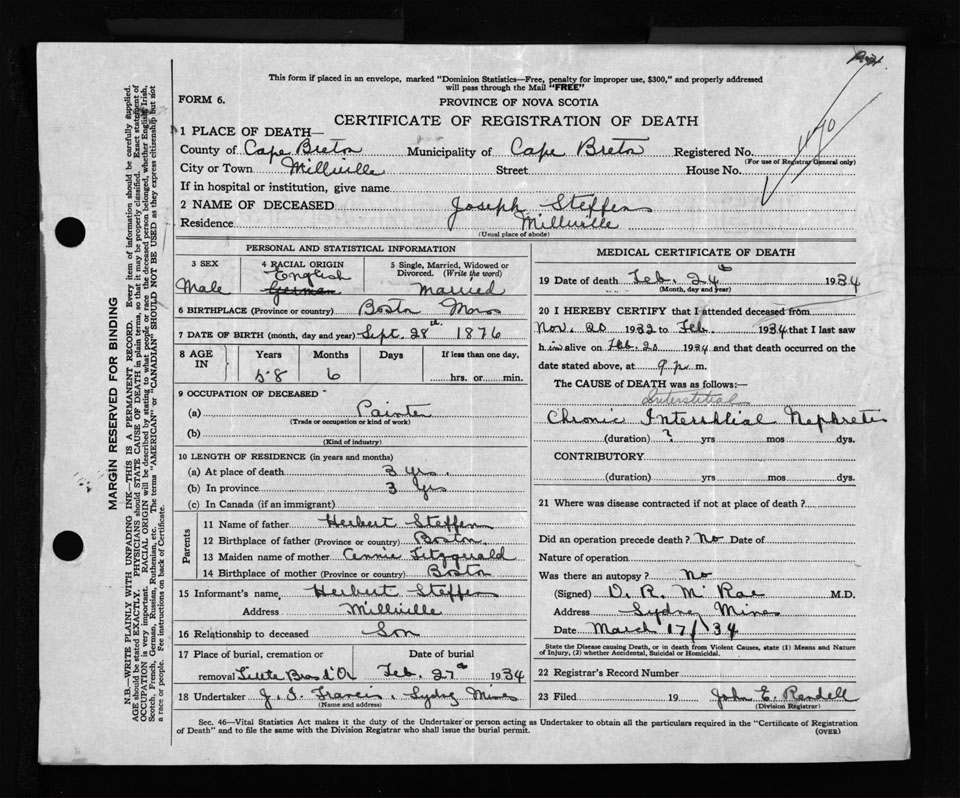 This form if placed in an envelope, marked "Dominion Statistics—Free, penalty for improper use, $300," and properly addressed
will pass through the Mail "FREE"
FORM 6.
PROVINCE OF NOVA SCOTIA
CERTIFICATE OF REGISTRATION OF DEATH
1 PLACE OF DEATH—
County of Cape Breton Municipality of Cape Breton Registered No.
(For use of Registrar General only)
1470
City or Town Millville Street House No.
If in hospital or institution, give name
2 NAME OF DECEASED Joseph Steffen
Residence Millville
(Usual place of abode)
PERSONAL AND STATISTICAL INFORMATION
3 SEX
Male
4 RACIAL ORIGIN
English
German
5 Single, Married, Widowed or
Divorced. (Write the word)
Married
6 BIRTHPLACE (Province or country) Boston Mass
7 DATE OF BIRTH (month, day and year) Sept. 28th 1876
8 AGE
IN
Years
58
Months
6
Days
If less than one day.
hrs. or min.
9 OCCUPATION OF DECEASED
(a) Painter
(Trade or occupation or kind of work)
(b)
(Kind of industry)
10 LENGTH OF RESIDENCE (in years and months)
(a) At place of death 3 yrs.
(b) In province 3 yrs
(c) In Canada (if an immigrant)
Parents
11 Name of father Herbert Steffen
12 Birthplace of father (Province or country) Boston.
13 Maiden name of mother Annie Fitzgerald
14 Birthplace of mother (Province or country) Boston
15 Informant's name Herbert Steffen
Address Millville
16 Relationship to deceased Son
17 Place of burial, cremation or
removal Little Bras d'Or
Date of burial
Feb. 27th 1934
18 Undertaker J. J. Francis, Sydney Mines
(Name and address)
MEDICAL CERTIFICATE OF DEATH
19 Date of death Feb. 24th 1934
(Month, day and year)
20 I HEREBY CERTIFY that I attended deceased from
Nov. 20 1932 to Feb. 1934 that I last saw
h im alive on Feb. 20 1934 and that death occurred on the
date stated above, at 9 p. m.
The CAUSE OF DEATH was as follows:—
Interstitial
Chronic Interstitial Nephritis
(duration) ? yrs mos dys.
CONTRIBUTORY
(duration) yrs mos dys.
21 Where was disease contracted if not at place of death?
Did an operation precede death? No Date of
Nature of operation
Was there an autopsy? No
(Signed) D. R. McRae M.D.
Address Sydney Mines
Date March 17/34
State the Disease causing Death, or in death from Violent Causes, state (1) Means and Nature
of Injury, (2) whether Accidental, Suicidal or Homicidal.
22 Registrar's Record Number
23 Filed 19 John E. Rendell
(Division Registrar)
Sec. 46—Vital Statistics Act makes it the duty of the Undertaker or person acting as Undertaker to obtain all the particulars required in the "Certificate of Registration
of Death" and to file the same with the Division Registrar who shall issue the burial permit.
(OVER)
MARGIN RESERVED FOR BINDING
N.B.—WRITE PLAINLY WITH UNFADING INK—THIS IS A PERMANENT RECORD. Every item of information should be carefully supplied.
AGE should be stated EXACTLY. PHYSICIANS should STATE CAUSE OF DEATH in plain terms, so that it may be properly classified. Exact statement of
OCCUPATION is very important. RACIAL ORIGIN will be described by stating to what people or race the deceased person belonged, whether English, Irish,
Scotch, French, German, Russian, Ruthenian, etc. The terms "AMERICAN" or "CANADIAN" SHOULD NOT BE USED as they express citizenship but not
a race or people. Fee instructions on back of Certificate.